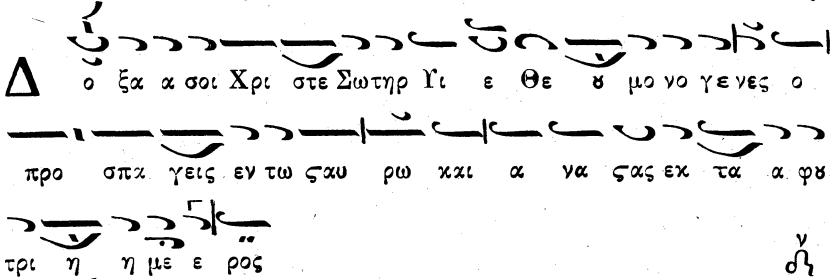 Δ ο ξα α σοι Χρι στε Σωτηρ Υι ε Θε ȣ μο νο γε νες ο
προ σπα γεις εν τω ϛαυ ρω και α να ϛας εκ τα α φȣ
τρι η η με ε ρος ν